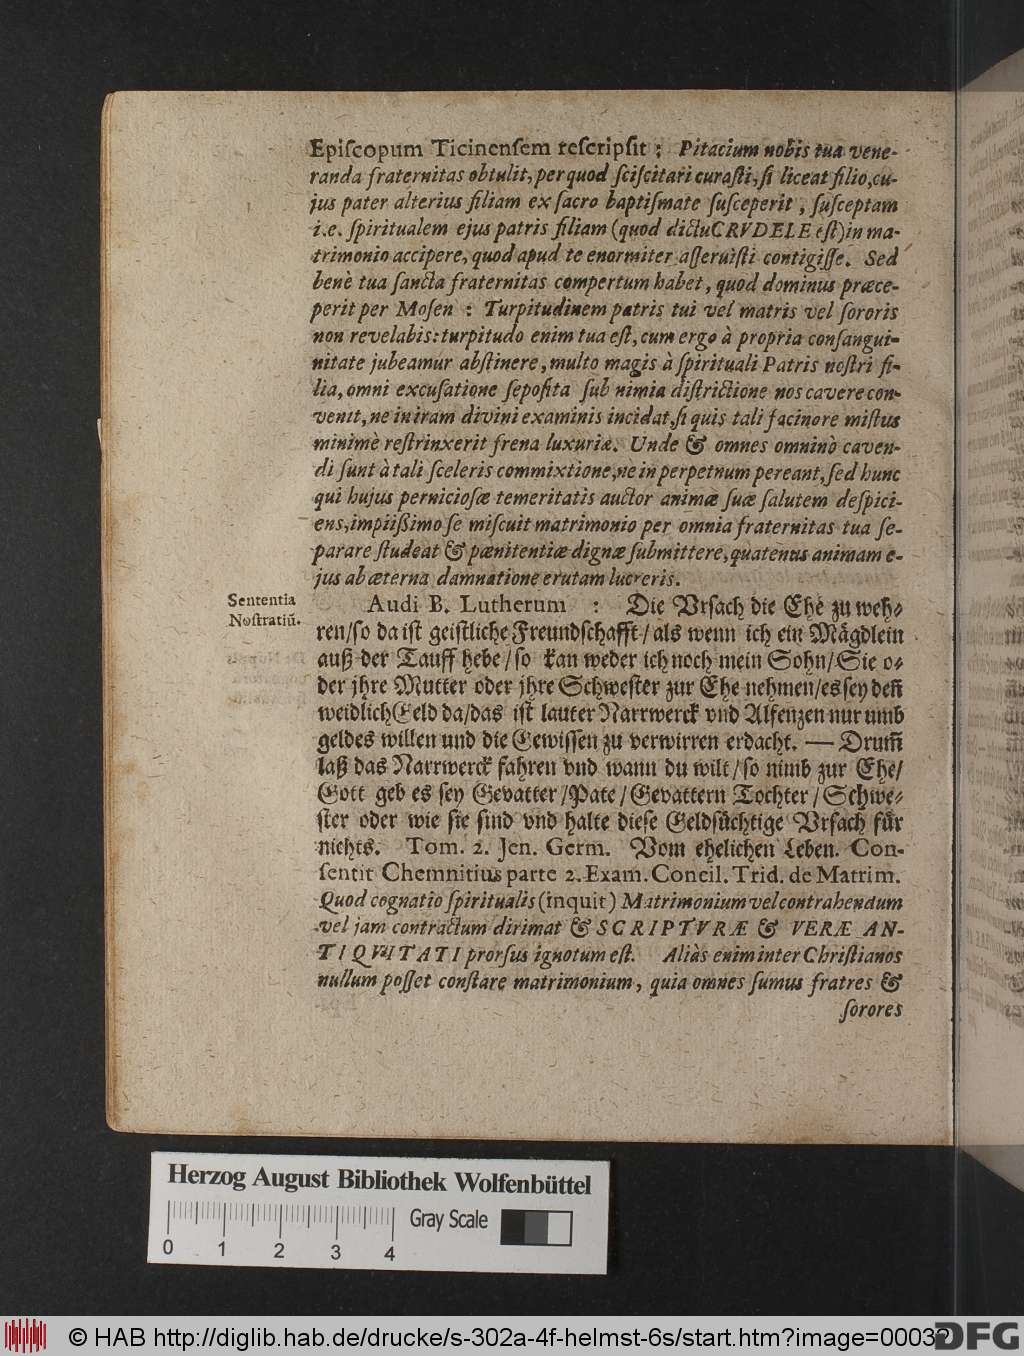 Epiſcopum Ticinenſem reſcripſit : Pitacium nobis tua vene-
randa fraternitas obtulit, per quod ſciſcitari curaſti, ſi liceat filio, cu-
jus pater alterius filiam ex ſacro baptiſmate ſuſceperit, ſuſceptam
i.e. ſpiritualem ejus patris filiam (quod dictu CRVDELE eſt) in ma-
trimonio accipere, quod apud te enormiter aſſeruiſti contigiſſe. Sed
benè tua ſancta fraternitas compertum habet, quod dominus præce-
perit per Moſen : Turpitudinem patris tui vel matris vel ſororis
non revelabis: turpitudo enim tua eſt, cum ergo à propria conſangui-
nitate jubeamur abſtinere, multo magis à ſpirituali Patris noſtri fi-
lia, omni excuſatione ſepoſita ſub nimia diſtrictione nos cavere con-
venit, ne in iram divini examinis incidat, ſi quis tali facinore miſtus
minimè reſtrinxerit frena luxuriæ. Unde & omnes omninò caven-
di ſunt à tali ſceleris commixtione, ne in perpetnum pereant, ſed hunc
qui hujus pernicioſæ temeritatis auctor animæ ſuæ ſalutem deſpici-
ens, impiißimo ſe miſcuit matrimonio per omnia fraternitas tua ſe-
parare ſtudeat & pænitentiæ dignæ ſubmittere, quatenus animam e-
jus ab æterna damnatione erutam lucreris.
Sententia
Noſtratiū.
Audi B. Lutherum : Die Vrſach die Ehe zu weh-
ren/ſo da iſt geiſtliche Freundſchafft/als wenn ich ein Mägdlein
auß der Tauff hebe/ſo kan weder ich noch mein Sohn/Sie o-
der jhre Mutter oder jhre Schweſter zur Ehe nehmen/es ſey deñ
weidlich Geld da/das iſt lauter Narrwerck vnd Alfenzen nur umb
geldes willen und die Gewiſſen zu verwirren erdacht. — Drum̃
laß das Narrwerck fahren vnd wann du wilt/ſo nimb zur Ehe/
Gott geb es ſey Gevatter/Pate/Gevattern Tochter/Schwe-
ſter oder wie ſie ſind vnd halte dieſe Geldſüchtige Vrſach für
nichts. Tom. 2. Jen. Germ. Vom ehelichen Leben. Con-
ſentit Chemnitius parte 2. Exam. Concil. Trid. de Matrim.
Quod cognatio ſpiritualis (inquit) Matrimonium vel contrahendum
vel jam contractum dirimat & SCRIPTVRÆ & VERÆ AN-
TIQVITATI prorſus ignotum eſt. Aliàs enim inter Chriſtianos
nullum poſſet conſtare matrimonium, quia omnes ſumus fratres &
ſorores
Herzog August Bibliothek Wolfenbüttel
Gray Scale
0 1 2 3 4
© HAB http://diglib.hab.de/drucke/s-302a-4f-helmst-6s/start.htm?image=00032
DFG